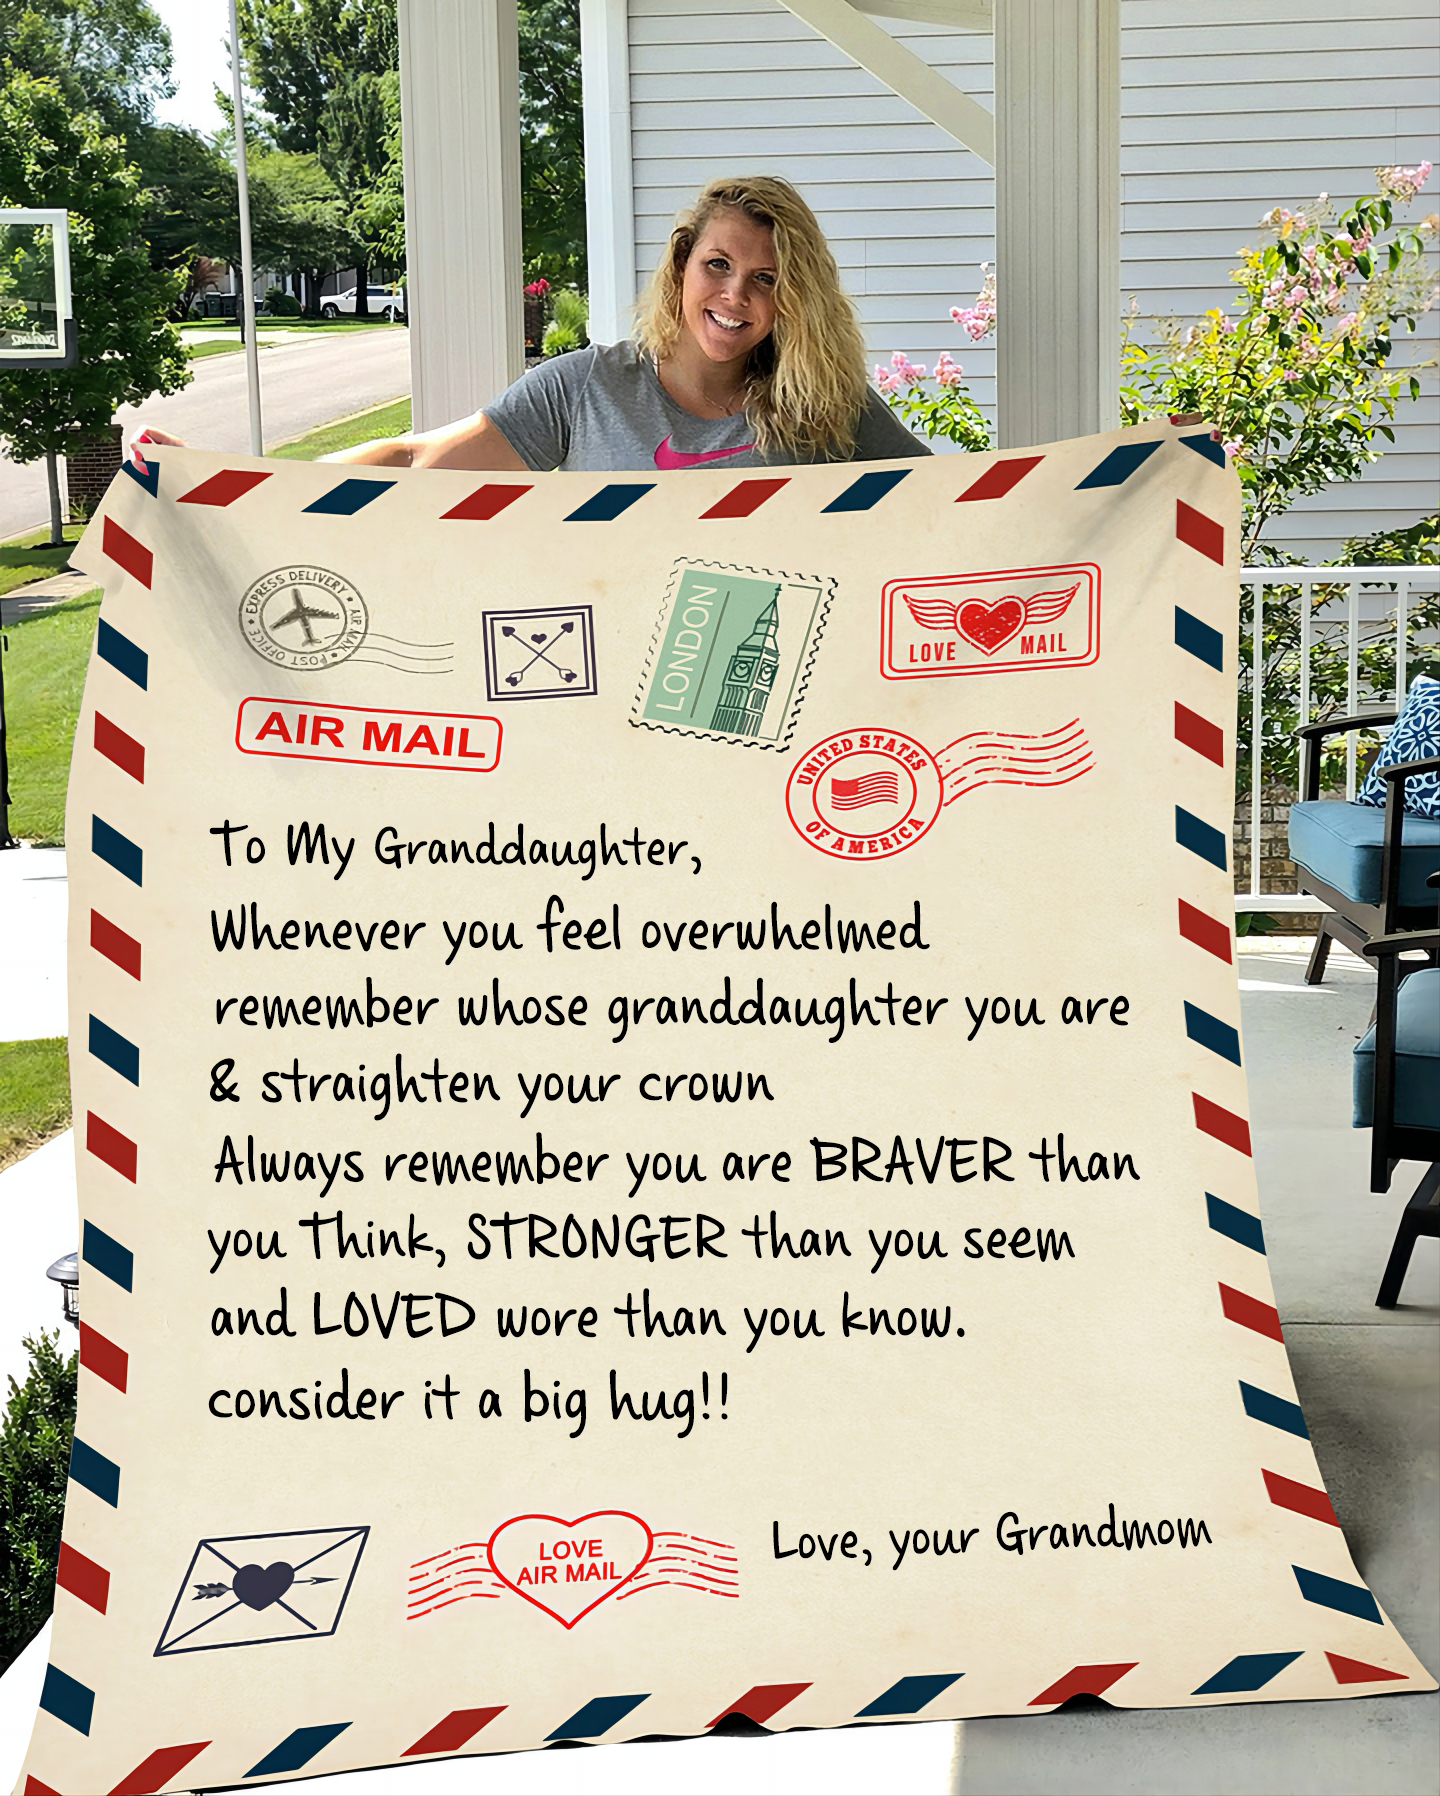 EXPRESS DELIVERY
AIR MAIL
POST OFFICE
LONDON
LOVE MAIL
AIR MAIL
UNITED STATES
OF AMERICA
To My Granddaughter,
Whenever you feel overwhelmed
remember whose granddaughter you are
& straighten your crown
Always remember you are BRAVER than
you Think, STRONGER than you seem
and LOVED wore than you know.
consider it a big hug!!
LOVE
AIR MAIL
Love, your Grandmom